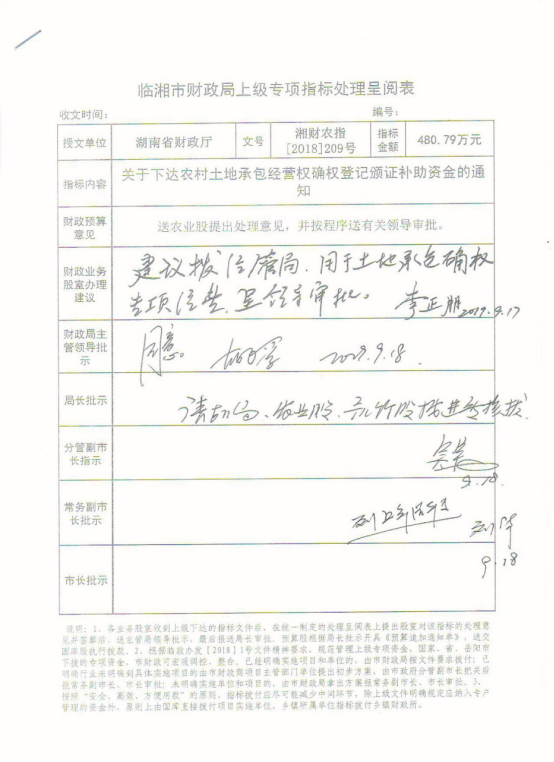 临湘市财政局上级专项指标处理呈阅表
收文时间： 编号：
授文单位 湖南省财政厅 文号 湘财农指[2018]209号 指标金额 480.79万元
指标内容 关于下达农村土地承包经营权确权登记颁证补助资金的通知
财政预算意见 送农业股提出处理意见，并按程序送有关领导审批。
财政业务股室办理建议 建议拨经管局，用于土地承包确权
专项经费，呈领导审批。 李正朋 2019.9.17
财政局主管领导批示 同意。 2019.9.18.
局长批示
分管副市长指示 9.18.
常务副市长批示 9.18
市长批示
说明：1、各业务股室收到上级下达的指标文件后，在统一制定的处理呈阅表上提出股室对该指标的处理意
见并签章后，送主管局领导批示，最后报送局长审批，预算股根据局长批示开具《预算追加通知单》，送交
国库股执行拨款。2、根据临政办发[2018]1号文件精神要求，规范管理上级专项资金，国家、省、岳阳市
下拨的专项资金，市财政可宏观调控、整合。已经明确实施项目和单位的，由市财政局按文件要求拨付；已
明确行业未明确到具体实施项目的由市财政商项目主管部门单位提出初步方案，由市政府分管副市长把关后
报常务副市长、市长审批；未明确实施单位和项目的，由市财政局拿出方案报常务副市长、市长审批。3、
按照“安全、高效、方便用款”的原则，指标拨付应尽可能减少中间环节，除上级文件明确规定应纳入专户
管理的资金外，原则上由国库直接拨付项目实施单位，乡镇所属单位指标拨付乡镇财政所。